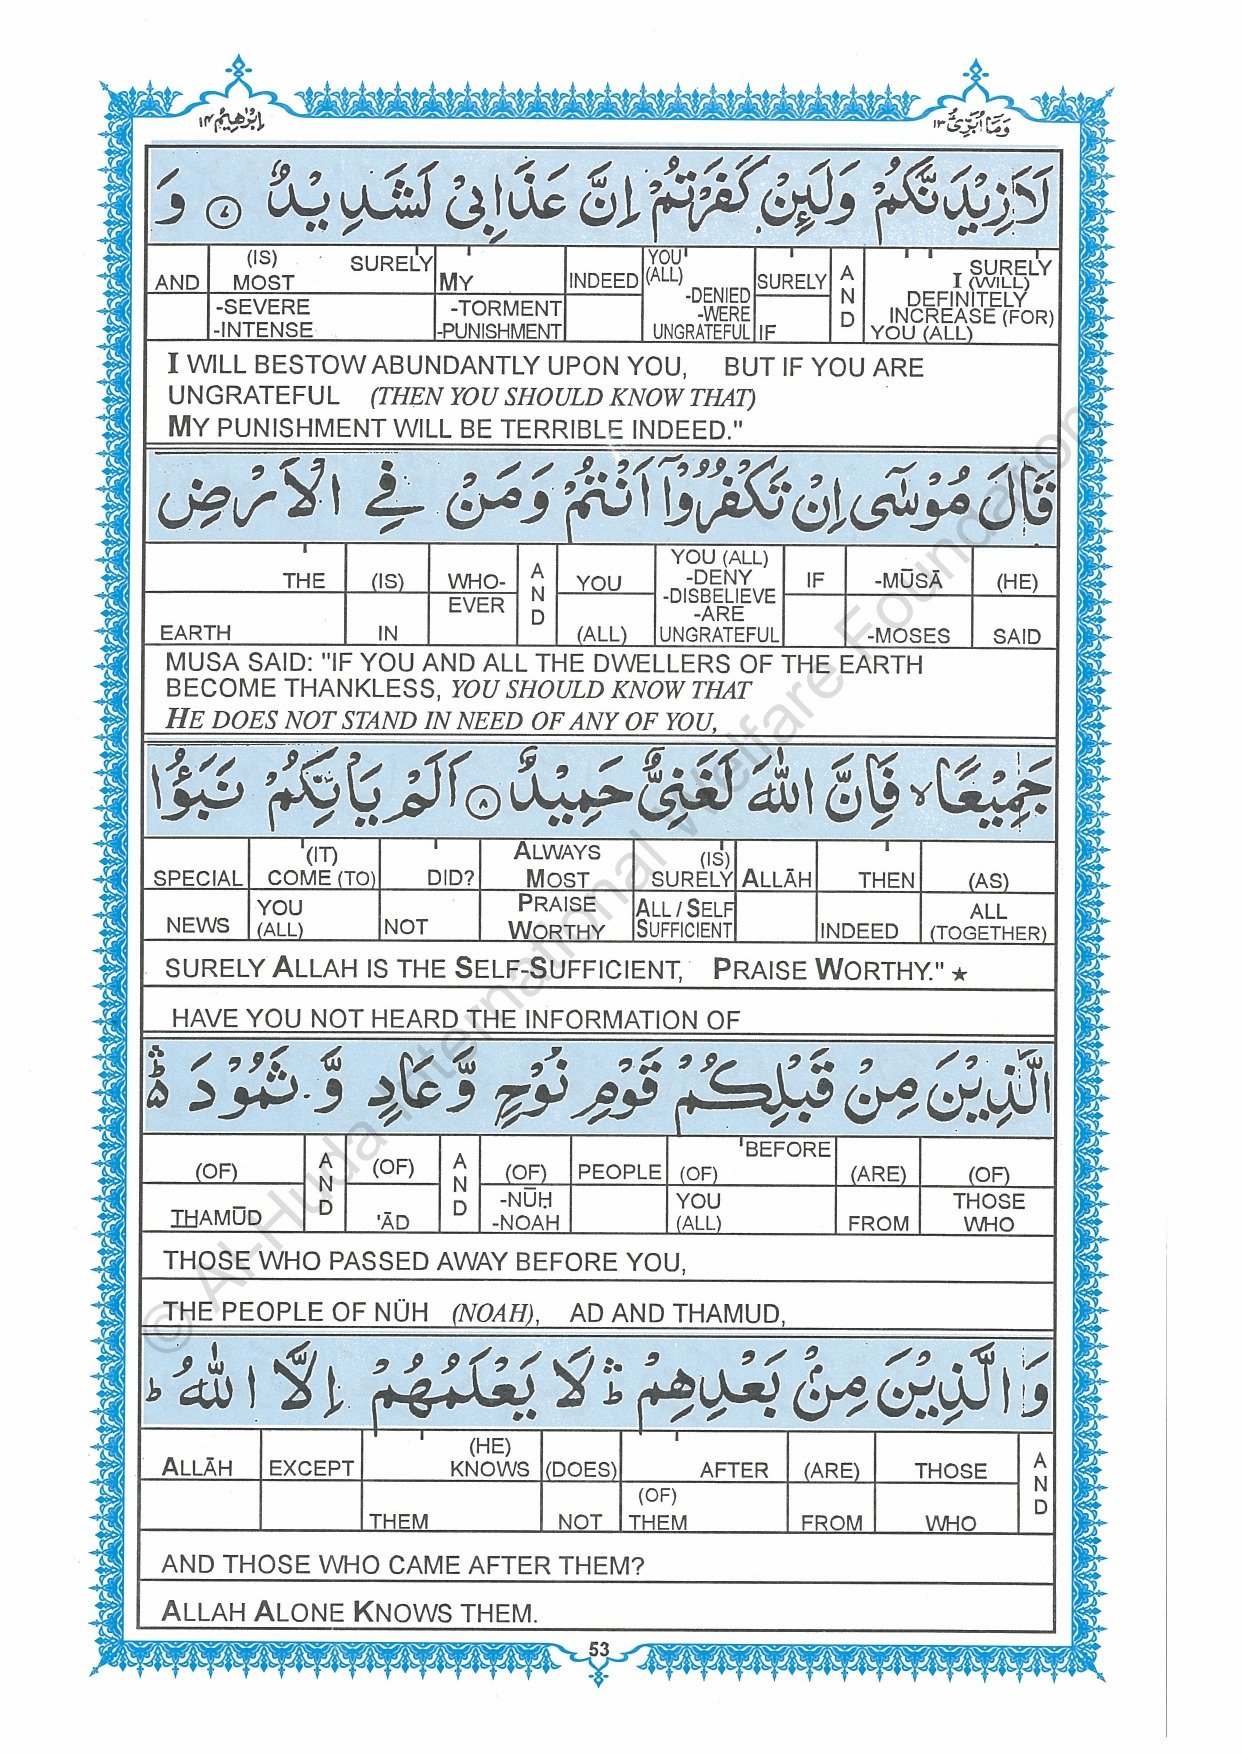 اِبْرٰهِيْمُ ١٤
وَمَا اُبَرِّئُ ١٣
لَاَزِيْدَنَّكُمْ وَلَئِنْ كَفَرْتُمْ اِنَّ عَذَابِيْ لَشَدِيْدٌ ٧ وَ
AND (IS) MOST SURELY MY INDEED YOU (ALL) SURELY AND SURELY I (WILL) DEFINITELY INCREASE (FOR) YOU (ALL)
-SEVERE -INTENSE -TORMENT -PUNISHMENT -DENIED -WERE UNGRATEFUL IF
I WILL BESTOW ABUNDANTLY UPON YOU, BUT IF YOU ARE
UNGRATEFUL (THEN YOU SHOULD KNOW THAT)
MY PUNISHMENT WILL BE TERRIBLE INDEED."
قَالَ مُوْسٰٓى اِنْ تَكْفُرُوْٓا اَنْتُمْ وَمَنْ فِي الْاَرْضِ
THE (IS) WHO- AND YOU YOU (ALL) -DENY -DISBELIEVE -ARE UNGRATEFUL IF -MŪSĀ (HE)
EARTH IN EVER (ALL) -MOSES SAID
MUSA SAID: "IF YOU AND ALL THE DWELLERS OF THE EARTH
BECOME THANKLESS, YOU SHOULD KNOW THAT
HE DOES NOT STAND IN NEED OF ANY OF YOU,
جَمِيْعًا ۙ فَاِنَّ اللّٰهَ لَغَنِيٌّ حَمِيْدٌ ٨ اَلَمْ يَاْتِكُمْ نَبَؤُا
SPECIAL (IT) COME (TO) DID? ALWAYS MOST (IS) SURELY ALLĀH THEN (AS)
NEWS YOU (ALL) NOT PRAISE WORTHY ALL / SELF SUFFICIENT INDEED ALL (TOGETHER)
SURELY ALLAH IS THE SELF-SUFFICIENT, PRAISE WORTHY." ★
HAVE YOU NOT HEARD THE INFORMATION OF
الَّذِيْنَ مِنْ قَبْلِكُمْ قَوْمِ نُوْحٍ وَّعَادٍ وَّ ثَمُوْدَ ۛؕ
(OF) AND (OF) AND (OF) PEOPLE (OF) BEFORE (ARE) (OF)
THAMŪD 'ĀD -NŪḤ -NOAH YOU (ALL) FROM THOSE WHO
THOSE WHO PASSED AWAY BEFORE YOU,
THE PEOPLE OF NÜH (NOAH), AD AND THAMUD,
وَالَّذِيْنَ مِنْۢ بَعْدِهِمْ ۛؕ لَا يَعْلَمُهُمْ اِلَّا اللّٰهُ ؕ
ALLĀH EXCEPT (HE) KNOWS (DOES) AFTER (ARE) THOSE AND
THEM NOT (OF) THEM FROM WHO
AND THOSE WHO CAME AFTER THEM?
ALLAH ALONE KNOWS THEM.
53
© Al-Huda International Welfare Foundation